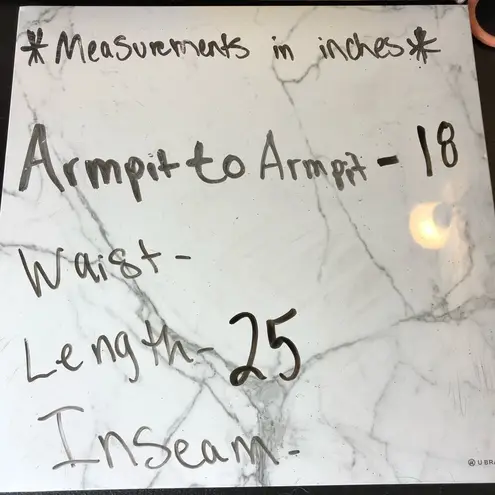 *Measurements in inches*
Armpit to Armpit - 18
Waist -
Length - 25
Inseam -